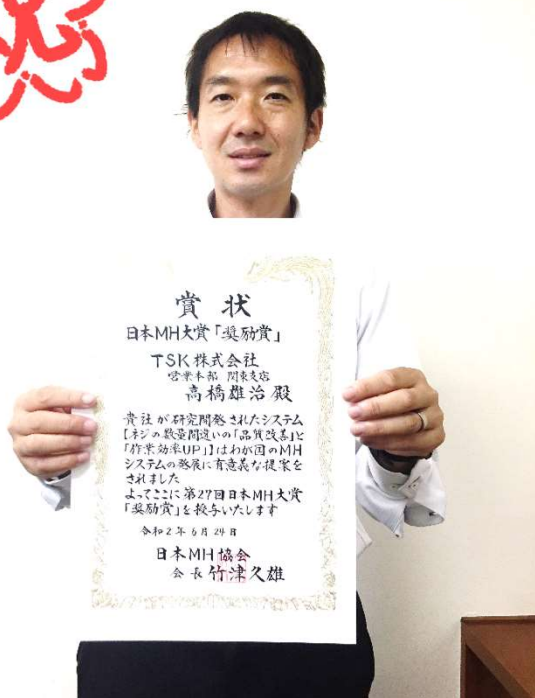 賞状
日本MH大賞「奨励賞」
TSK株式会社
営業本部 関東支店
高橋雄治 殿
貴社が研究開発されたシステム
【ネジの数量間違いの「品質改善」と
「作業効率UP」】はわが国のMH
システムの発展に有意義な提案を
されました
よってここに第27回日本MH大賞
「奨励賞」を授与いたします
令和2年6月24日
日本MH協会
会長 竹津久雄